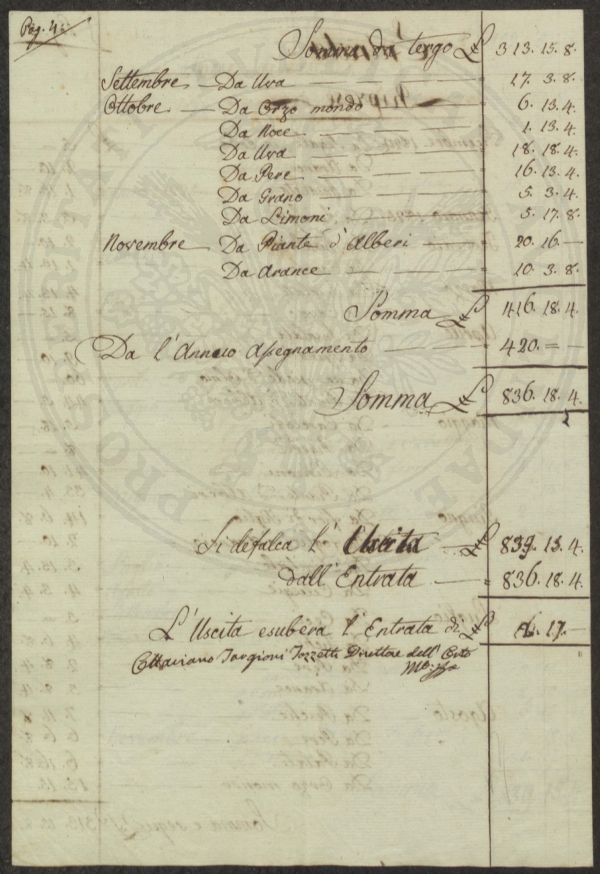 Pag. 4.
Somma da tergo £ 313. 15. 8.
Settembre — Da Uva — 17. 3. 8.
Ottobre — Da Orzo mondo — 6. 13. 4.
Da Noce — 1. 13. 4.
Da Uva — 18. 18. 4.
Da Pere — 16. 13. 4.
Da Grano — 5. 3. 4.
Da Limoni — 5. 17. 8.
Novembre — Da Piante d'Alberi — 20. 16. —
Da Arance — 10. 3. 8.
Somma £ 416. 18. 4.
Da l'Annuo Assegnamento — 420. = —
Somma £ 836. 18. 4.
Si defalca l'Uscita — £ 839. 15. 4.
dall'Entrata — 836. 18. 4.
L'Uscita esubera l'Entrata di £ 17. —
Ottaviano Targioni Tozzetti Direttore dell'Orto